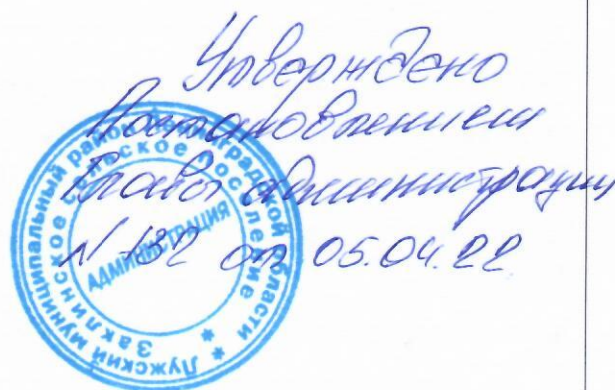 Утверждено
Постановлением
Главы администрации
N 132 от 05.04.22
Лужский муниципальный район Ленинградской области
Заклинское сельское поселение
АДМИНИСТРАЦИЯ